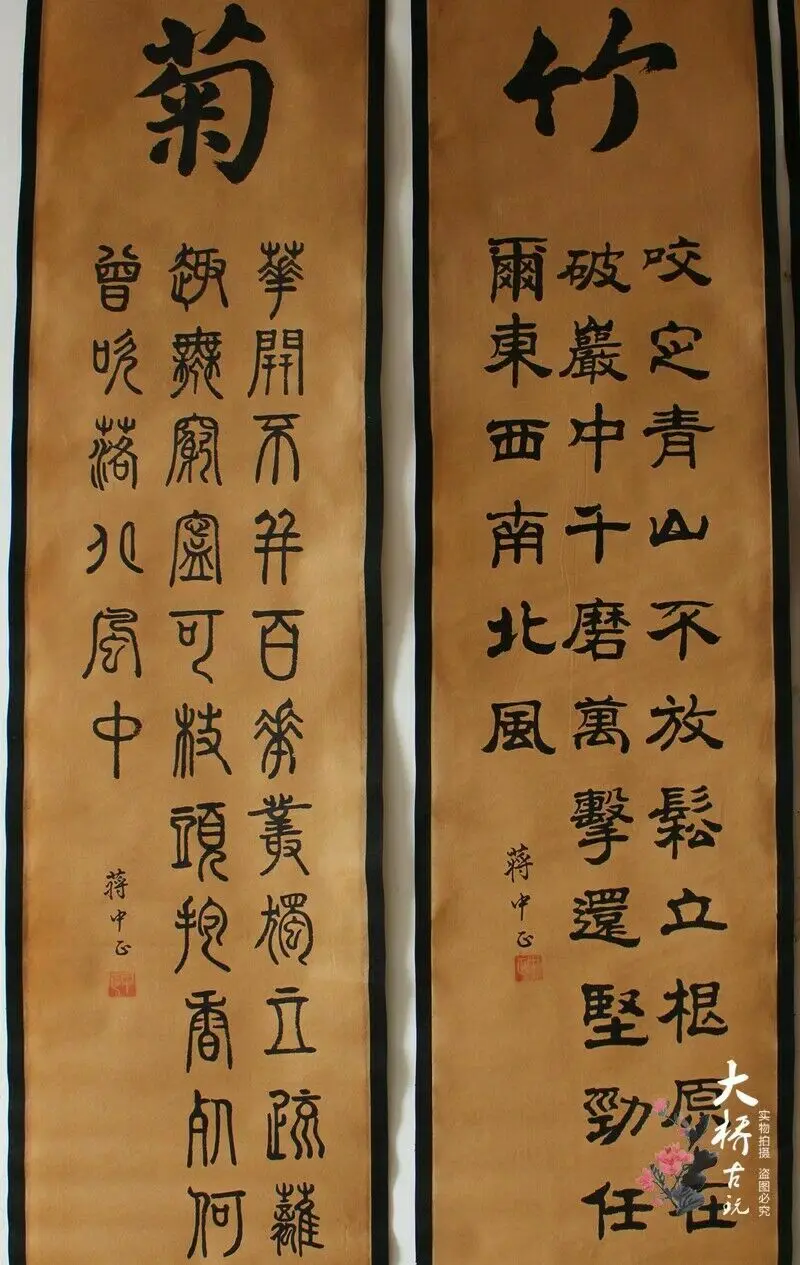 竹
咬定青山不放鬆立根原在
破巖中千磨萬擊還堅勁任
爾東西南北風
蔣中正
菊
華開不并百華叢獨立疏蘺
趣無窮寧可枝頭抱香死何
曾吹落北風中
蔣中正
大桥古玩
实物拍摄 盗图必究